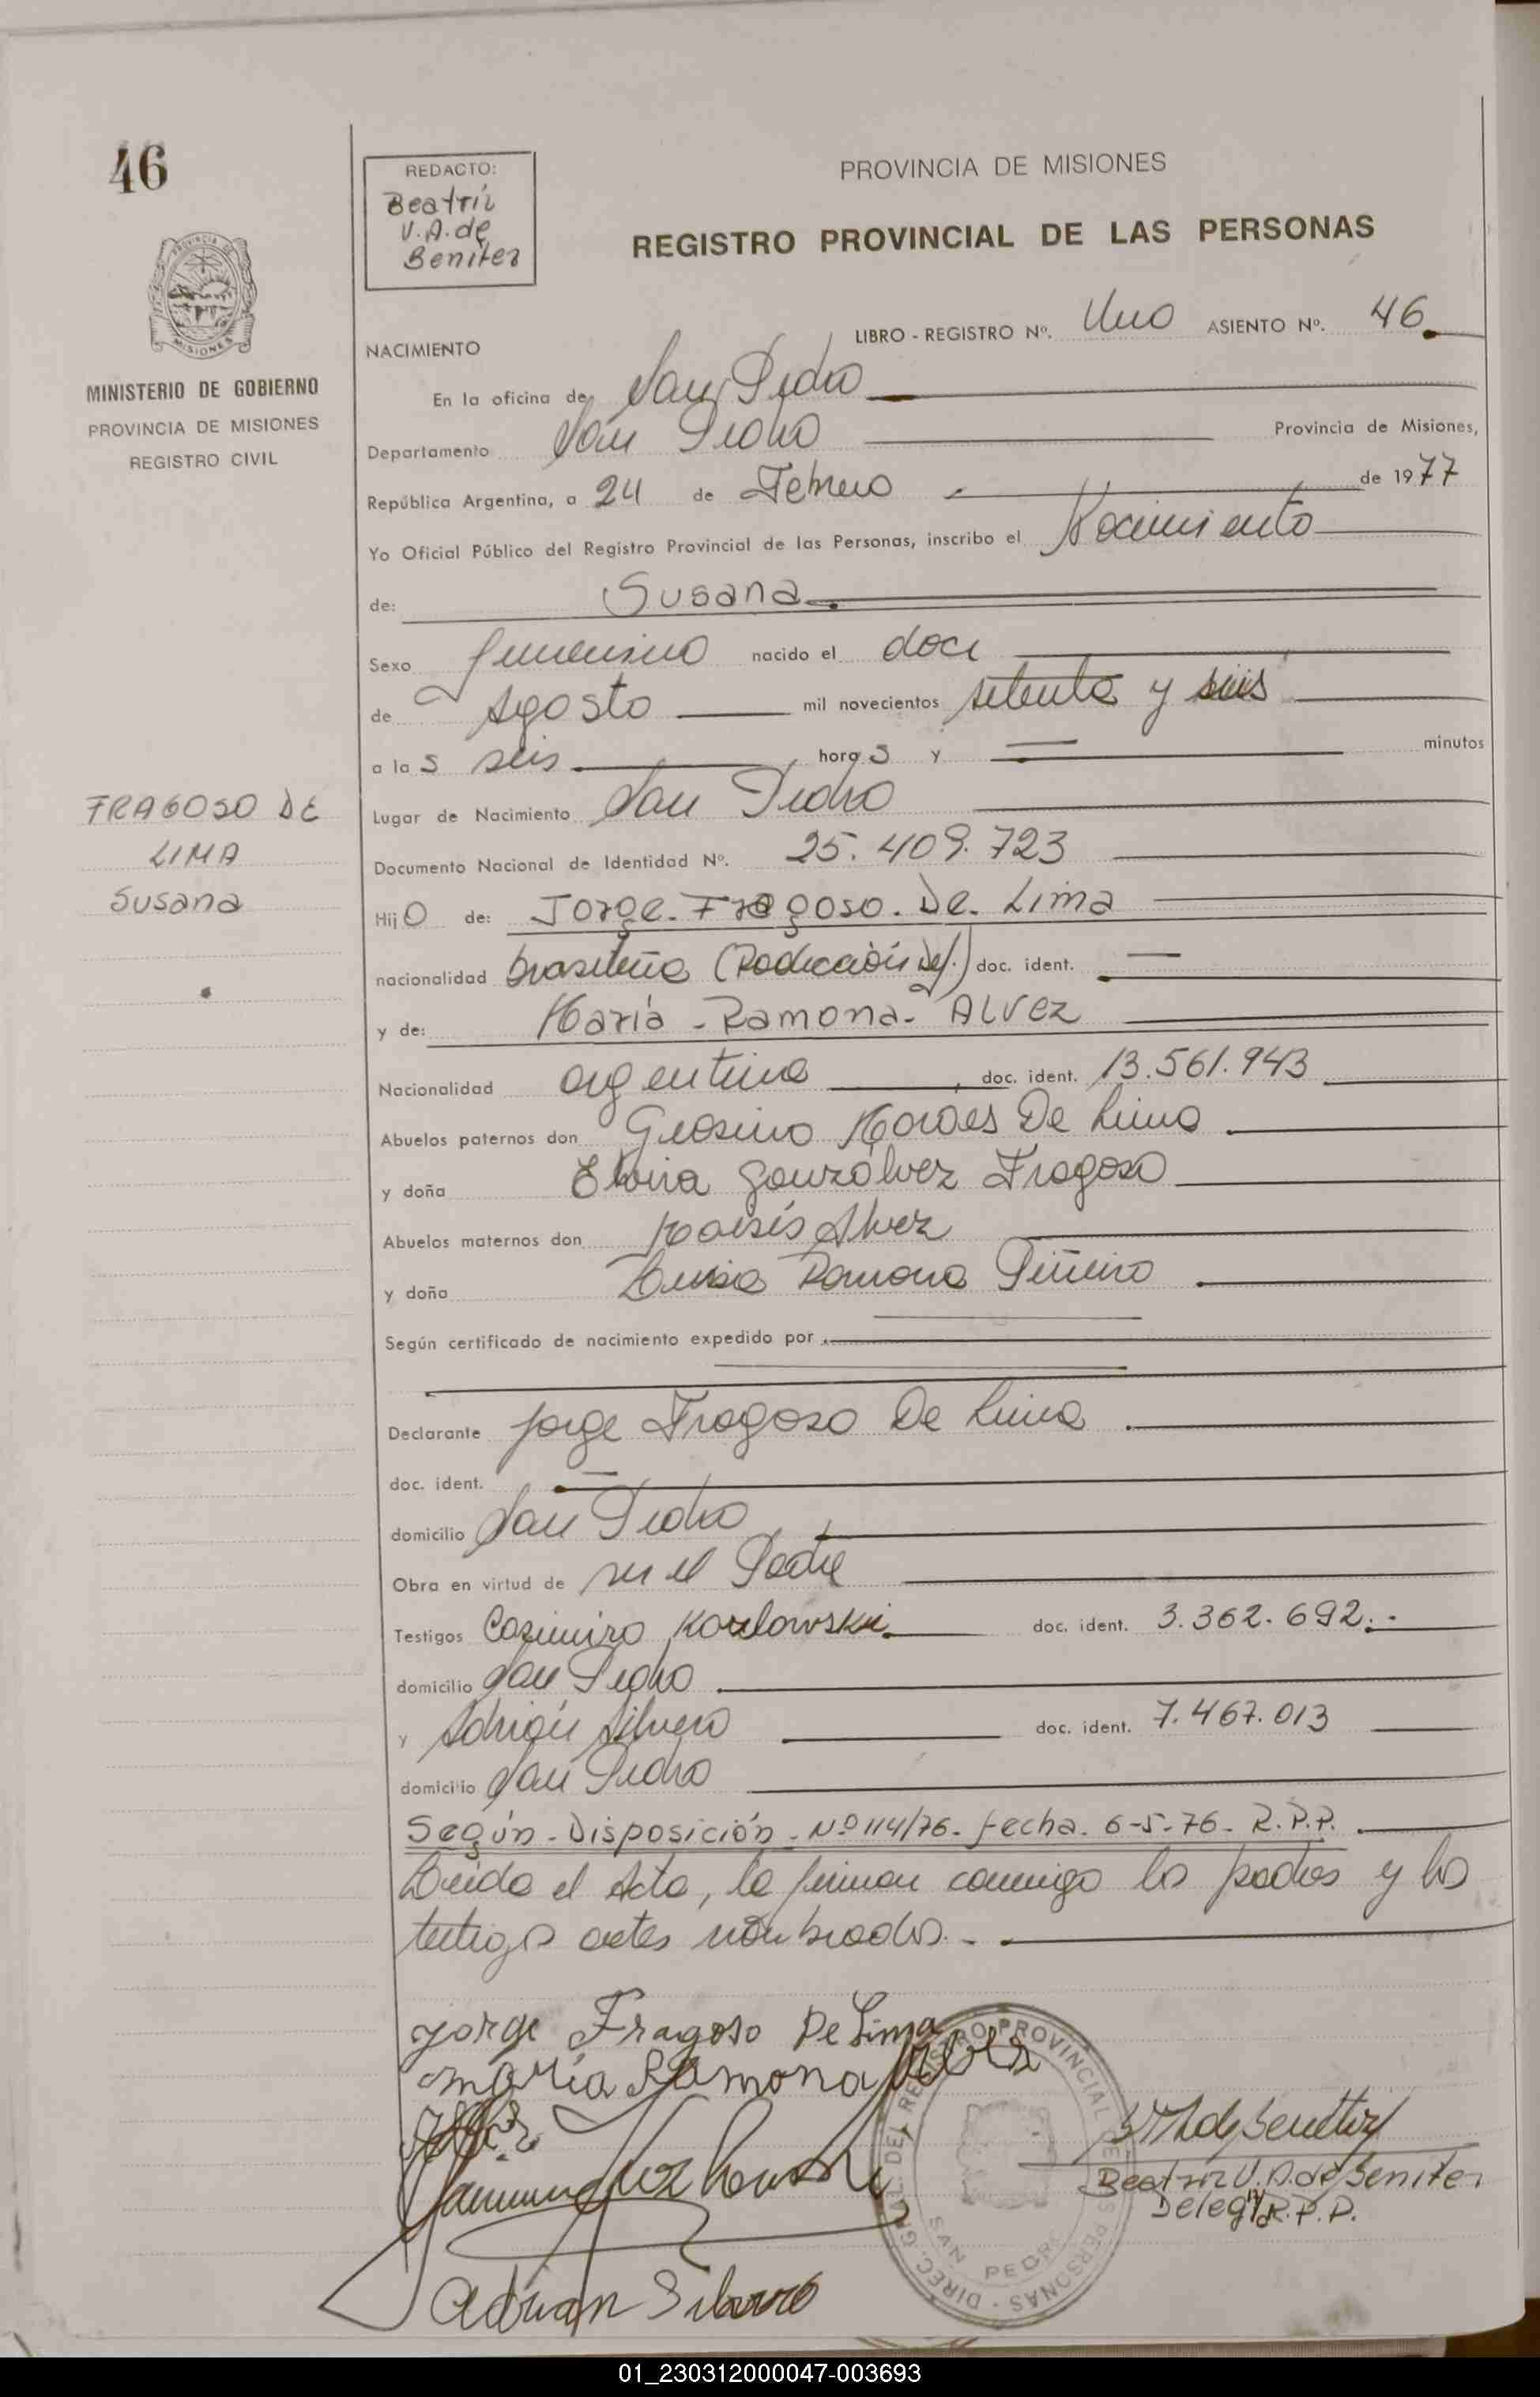 46
REDACTO:
Beatriz
V.A. de
Benitez
PROVINCIA DE MISIONES
REGISTRO PROVINCIAL DE LAS PERSONAS
MISIONES
MINISTERIO DE GOBIERNO
PROVINCIA DE MISIONES
REGISTRO CIVIL
LIBRO - REGISTRO Nº. Uno ASIENTO Nº. 46.
NACIMIENTO
En la oficina de San Pedro
Departamento San Pedro Provincia de Misiones,
República Argentina, a 24 de Febrero de 1977
Yo Oficial Público del Registro Provincial de las Personas, inscribo el Nacimiento
de: Susana
Sexo femenino nacido el doce
de Agosto mil novecientos setenta y seis
a las seis horas y — minutos
FRAGOSO DE
LIMA
Susana
Lugar de Nacimiento San Pedro
Documento Nacional de Identidad Nº. 25.409.723
HijO de: Jorge. Fragoso. De. Lima
nacionalidad brasileña (Radicación Def.) doc. ident. —
y de: María - Ramona - ALVEZ
Nacionalidad argentina doc. ident. 13.561.943
Abuelos paternos don Moraes De Lima
y doña Gonzálvez Fragoso
Abuelos maternos don Moisés Alvez
y doña Luisa Ramona Piñeiro
Según certificado de nacimiento expedido por
Declarante Jorge Fragoso De Lima
doc. ident. —
domicilio San Pedro
Obra en virtud de ser el Padre
Testigos Casimiro Kozlowski doc. ident. 3.362.692.-
domicilio San Pedro
y Adrián Silvero doc. ident. 7.467.013
domicilio San Pedro
Según - Disposición - Nº 114/76 - fecha. 6-5-76 - R.P.P.
Leída el Acta, la firman conmigo los padres y los
testigos antes nombrados. -
Jorge Fragoso De Lima
María Ramona Alvez
Beatriz V.A. de Benitez
Deleg. R.P.P.
DIREC. GRAL. DEL REGISTRO PROVINCIAL DE LAS PERSONAS
SAN PEDRO
Adrian Silvero
01_230312000047-003693